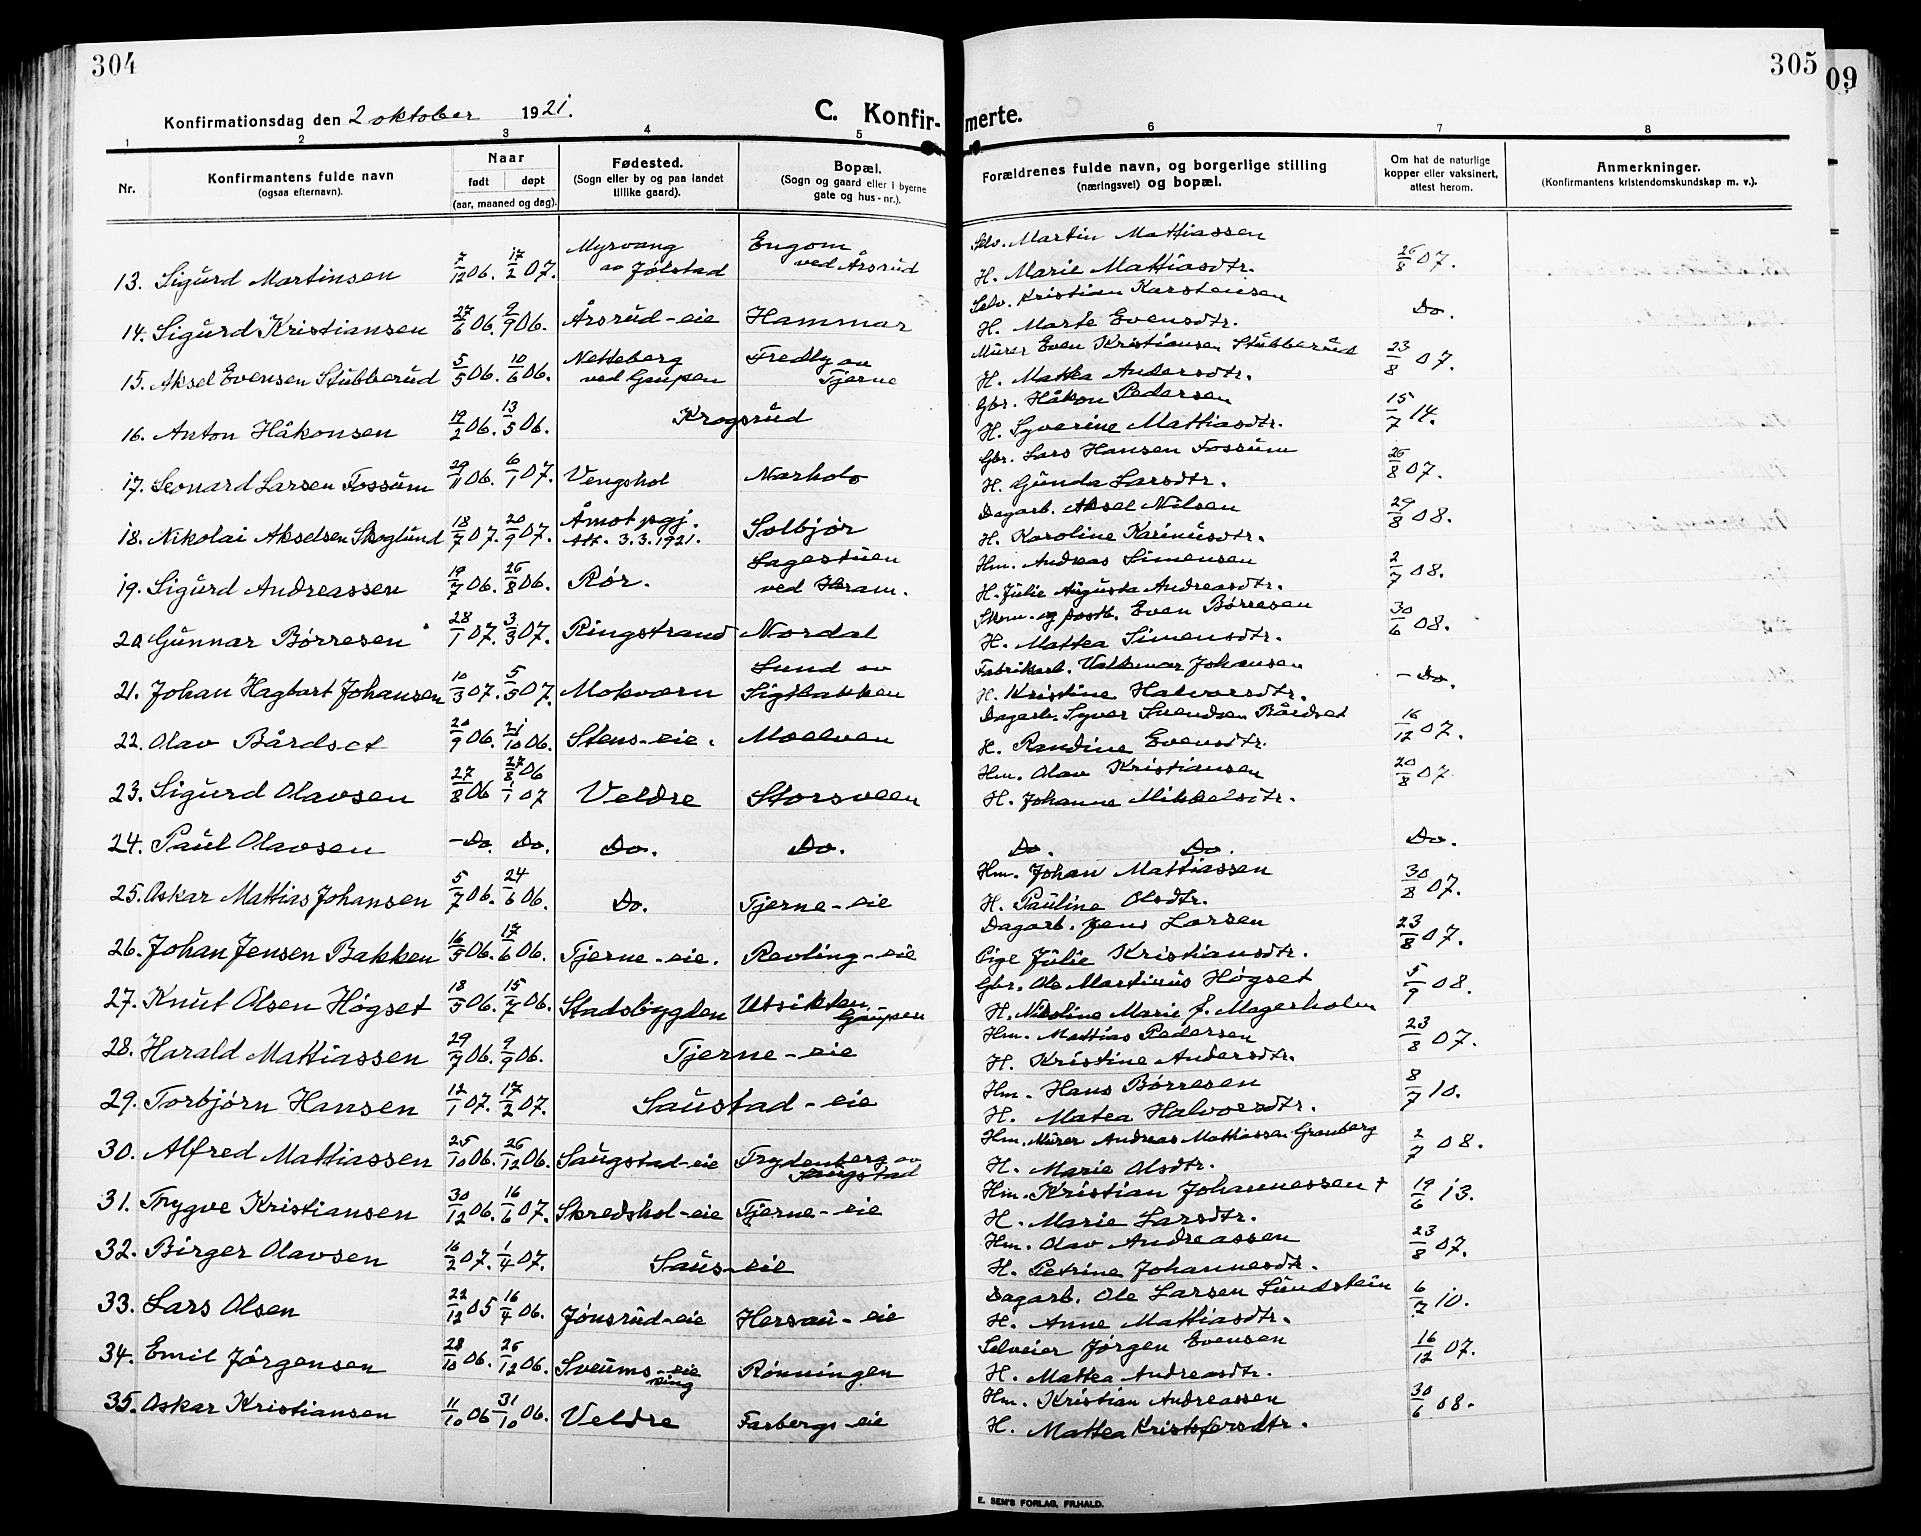 304
305
09
Konfirmationsdag den 2 oktober 1921.
C. Konfir-merte.
1 2 3 4 5 6 7 8
Nr.
Konfirmantens fulde navn
(ogsaa efternavn).
Naar
født døpt
(aar, maaned og dag).
Fødested.
(Sogn eller by og paa landet
tillike gaard).
Bopæl.
(Sogn og gaard eller i byerne
gate og hus-nr.).
Forældrenes fulde navn, og borgerlige stilling
(næringsvei) og bopæl.
Om hat de naturlige
kopper eller vaksinert,
attest herom.
Anmerkninger.
(Konfirmantens kristendomskundskap m. v.).
13. Sigurd Martinsen 7/12 06. 17/2 07. Myrvang av Jølstad Engom ved Årsrud Selv. Martin Mattiassen
H. Marie Mattiasdtr. 26/8 07.
14. Sigurd Kristiansen 27/6 06. 2/9 06. Årsrud-eie Hammar Selv. Kristian Karstensen
H. Marte Evensdtr. Do.
15. Aksel Evensen Stubberud 5/5 06. 10/6 06. Netteberg ved Gaupen Fredly av Tjerne Murer Even Kristiansen Stubberud
H. Mattea Andersdtr. 23/8 07.
16. Anton Håkonsen 19/2 06. 13/5 06. Krogsrud Gbr. Håkon Pedersen
H. Syverine Mattiasdtr. 15/7 14.
17. Leonard Larsen Fossum 29/11 06. 6/1 07. Vengshol Narholo Gbr. Lars Hansen Fossum
H. Gunda Larsdtr. 26/8 07.
18. Nikolai Akselsen Skoglund 18/7 07. 20/9 07. Åmot pgj. Att. 3.3.1921. Solbjør Dagarb. Aksel Nilsen
H. Karoline Karinusdtr. 29/8 08.
19. Sigurd Andreassen 19/7 06. 26/8 06. Rør. Lagestuen ved Heram. Hm. Andreas Simensen
H. Julie Augusta Andreasdtr. 2/7 08.
20 Gunnar Børresen 28/1 07. 3/3 07. Ringstrand Nordal Skom. og postb. Even Børresen
H. Mattea Simensdtr. 30/6 08.
21. Johan Hagbart Johansen 10/3 07. 5/5 07. Mokværn Lund av Sigstakken Fabrikarb. Valdemar Johansen
H. Kristine Halvorsdtr. - Do.
22. Olav Bårdset 20/9 06. 21/10 06. Stens-eie. Moelven Dagarb. Syver Svendsen Bårdset
H. Randine Evensdtr. 16/12 07.
23. Sigurd Olavsen 27/8 06 27/8 06 1/1 07 Veldre Storsveen Hm. Olav Kristiansen
H. Johanne Mikkelsdtr. 20/8 07
24. Paul Olavsen - Do. Do. Do. Do. Do. Do. Do.
25. Oskar Mattias Johansen 5/7 06. 24/6 06. Do. Tjerne-eie Hm. Johan Mattiassen
H. Pauline Olsdtr. 30/8 07.
26. Johan Jensen Bakken 16/5 06. 17/6 06. Tjerne-eie. Revling-eie Dagarb. Jens Larsen
Pige Julie Kristiansdtr. 23/8 07.
27. Knut Olsen Høgset 18/5 06. 15/7 06. Stadsbygden Utsikten Gaupen Gbr. Ole Martinus Høgset
H. Nikoline Marie f. Magerholm 5/9 08.
28. Harald Mattiassen 29/7 06. 2/9 06. Tjerne-eie Hm. Mattias Pedersen
H. Kristine Andersdtr. 23/8 07.
29. Torbjørn Hansen 12/1 07. 17/2 07. Saustad-eie Hm. Hans Børresen
H. Matea Halvorsdtr. 8/7 10.
30. Alfred Mattiassen 25/10 06. 26/12 06. Saugstad-eie Frydenberg av Saugstad Hm. Murer Andreas Mattiassen Granberg
H. Marie Olsdtr. 2/7 08.
31. Trygve Kristiansen 30/12 06. 16/6 07. Skredshol-eie Tjerne-eie Hm. Kristian Johannessen +
H. Marie Larsdtr. 19/6 13.
32. Birger Olavsen 16/2 07. 1/4 07. Saus-eie Hm. Olav Andreassen
H. Petrine Johannesdtr. 23/8 07.
33. Lars Olsen 22/12 05 16/4 06. Jønsrud-eie Hersau-eie Dagarb. Ole Larsen Lundstein
H. Anne Mattiasdtr. 6/7 10.
34. Emil Jørgensen 28/10 06. 26/12 06. Sveums-eie Ring Rønningen Selveier Jørgen Evensen
H. Mattea Andreasdtr. 16/12 07.
35. Oskar Kristiansen 11/10 06 31/10 06. Veldre Farbergs-eie Hm. Kristian Andreassen
H. Mattea Kristofersdtr. 30/6 08.
E. SEM'S FORLAG, FR.HALD.